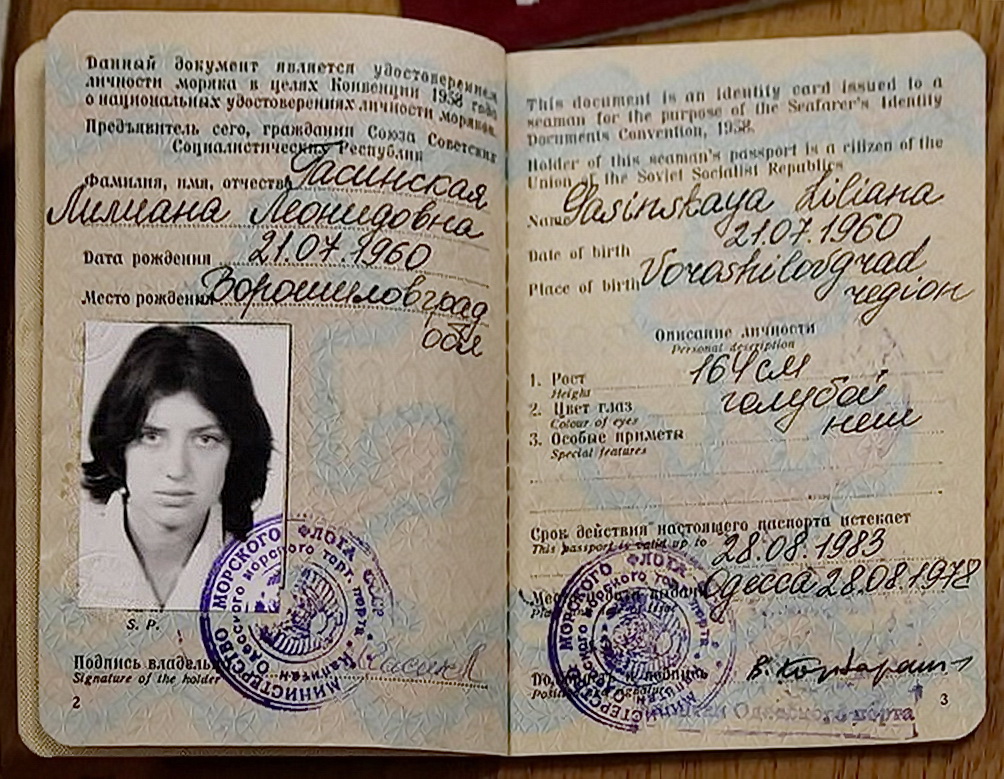 Данный документ является удостоверением
личности моряка в целях Конвенции 1958 года
о национальных удостоверениях личности моряков.
Предъявитель сего, гражданин Союза Советских
Социалистических Республик
Фамилия, имя, отчество Гасинская
Лилиана Леонидовна
Дата рождения 21.07.1960
Место рождения Ворошиловград
обл
S. P.
МИНИСТЕРСТВО МОРСКОГО ФЛОТА СССР
Одесского морского торг. порта
Капитан
Подпись владельца
Signature of the holder
2
This document is an identity card issued to a
seaman for the purpose of the Seafarer's Identity
Documents Convention, 1958.
Holder of this seaman's passport is a citizen of the
Union of the Soviet Socialist Republics
Name Gasinskaya Liliana
Date of birth 21.07.1960
Place of birth Voroshilovgrad
region
Описание личности
Personal description
1. Рост 164 см
Height
2. Цвет глаз голубой
Colour of eyes
3. Особые приметы нет
Special features
Срок действия настоящего паспорта истекает
This passport is valid up to 28.08.1983
Место и дата выдачи Одесса 28.08.1978
МИНИСТЕРСТВО МОРСКОГО ФЛОТА
Одесского морского торг. порта
Одесского порта
3